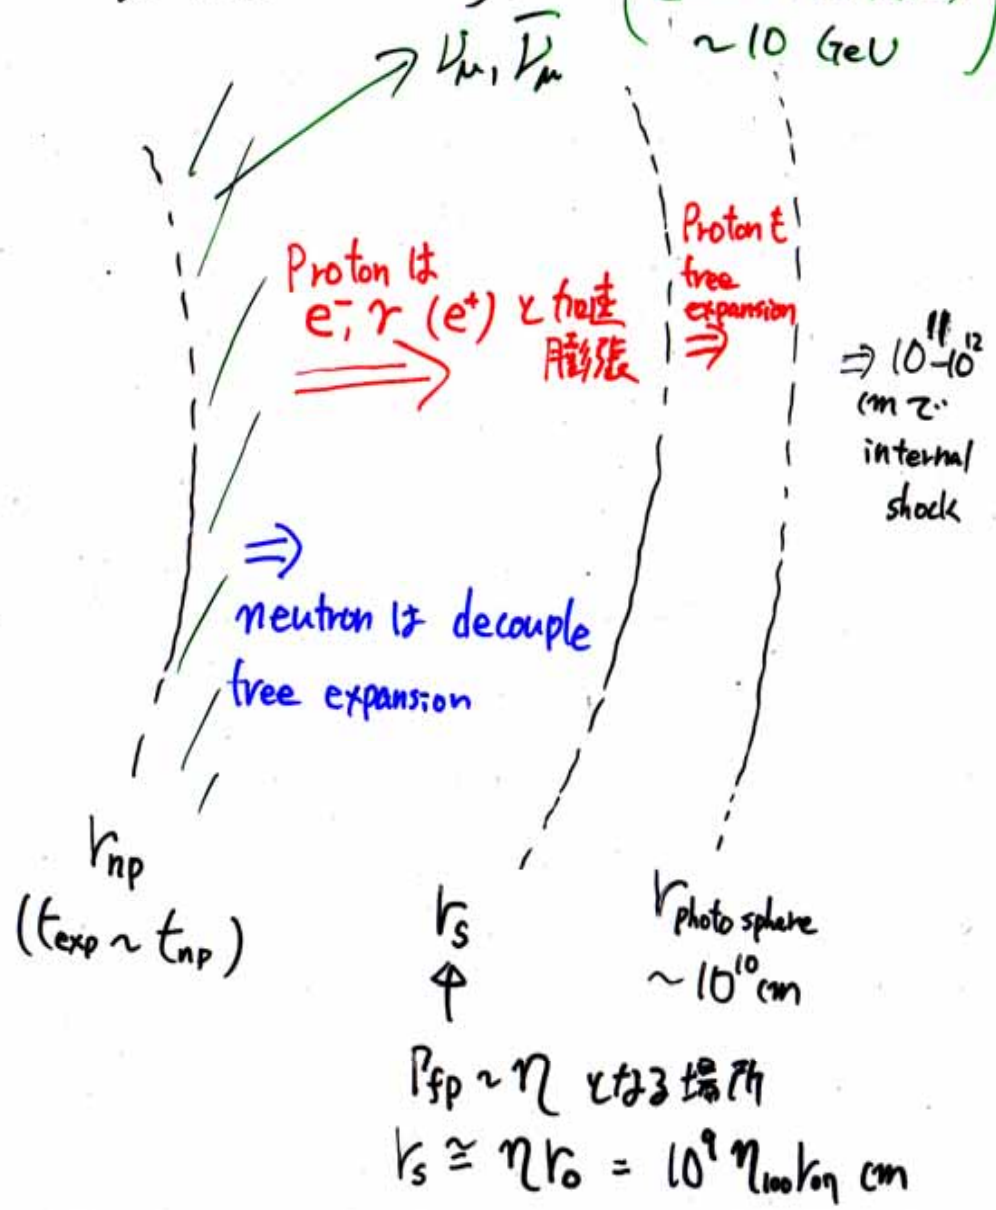 ν_μ, ν̄_μ
~10 GeV
Protonは
e⁻, γ (e⁺) と加速
膨張
Protonも
free
expansion
⇒ 10¹¹-10¹²
cmで
internal
shock
⇒
neutronは decouple
free expansion
r_np
(t_exp ~ t_np)
r_s
r_photosphere
~10¹⁰cm
Γ_fp ~ η となる場所
r_s ≅ ηr₀ = 10⁹ η₁₀₀ r₀,₇ cm